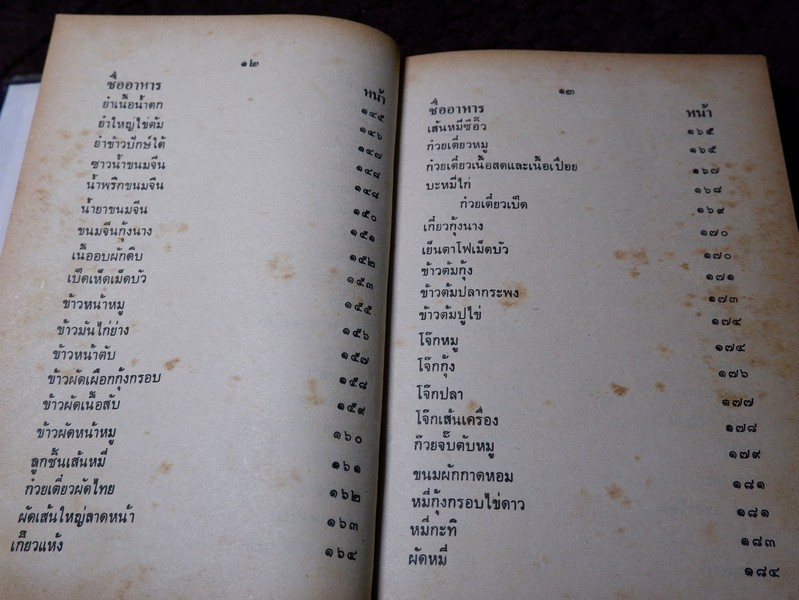 ๑๒
ชื่ออาหาร หน้า
ยำเนื้อน้ำตก ๑๔๕
ยำใหญ่ไข่ต้ม ๑๔๖
ยำข้าวปักษ์ใต้ ๑๔๗
ซาวน้ำขนมจีน ๑๔๘
น้ำพริกขนมจีน ๑๔๘
น้ำยาขนมจีน ๑๕๐
ขนมจีนกุ้งนาง ๑๕๑
เนื้ออบผักดิบ ๑๕๒
เป็ดเห็ดเม็ดบัว ๑๕๓
ข้าวหน้าหมู ๑๕๕
ข้าวมันไก่ย่าง ๑๕๖
ข้าวหน้าตับ ๑๕๗
ข้าวผัดเผือกกุ้งกรอบ ๑๕๘
ข้าวผัดเนื้อสับ ๑๕๙
ข้าวผัดหน้าหมู ๑๖๐
ลูกชิ้นเส้นหมี่ ๑๖๑
ก๋วยเตี๋ยวผัดไทย ๑๖๒
ผัดเส้นใหญ่ลาดหน้า ๑๖๓
เกี๊ยวแห้ง ๑๖๔
๑๓
ชื่ออาหาร หน้า
เส้นหมี่ซีอิ๊ว ๑๖๕
ก๋วยเตี๋ยวหมู ๑๖๕
ก๋วยเตี๋ยวเนื้อสดและเนื้อเปื่อย ๑๖๗
บะหมี่ไก่ ๑๖๘
ก๋วยเตี๋ยวเป็ด ๑๖๙
เกี๊ยวกุ้งนาง ๑๗๐
เย็นตาโฟเม็ดบัว ๑๗๐
ข้าวต้มกุ้ง ๑๗๑
ข้าวต้มปลากระพง ๑๗๓
ข้าวต้มปูไข่ ๑๗๔
โจ๊กหมู ๑๗๔
โจ๊กกุ้ง ๑๗๖
โจ๊กปลา ๑๗๗
โจ๊กเส้นเครื่อง ๑๗๘
ก๊วยจั๊บตับหมู ๑๗๙
ขนมผักกาดหอม ๑๘๑
หมี่กุ้งกรอบไข่ดาว ๑๘๑
หมี่กะทิ ๑๘๓
ผัดหมี่ ๑๘๔